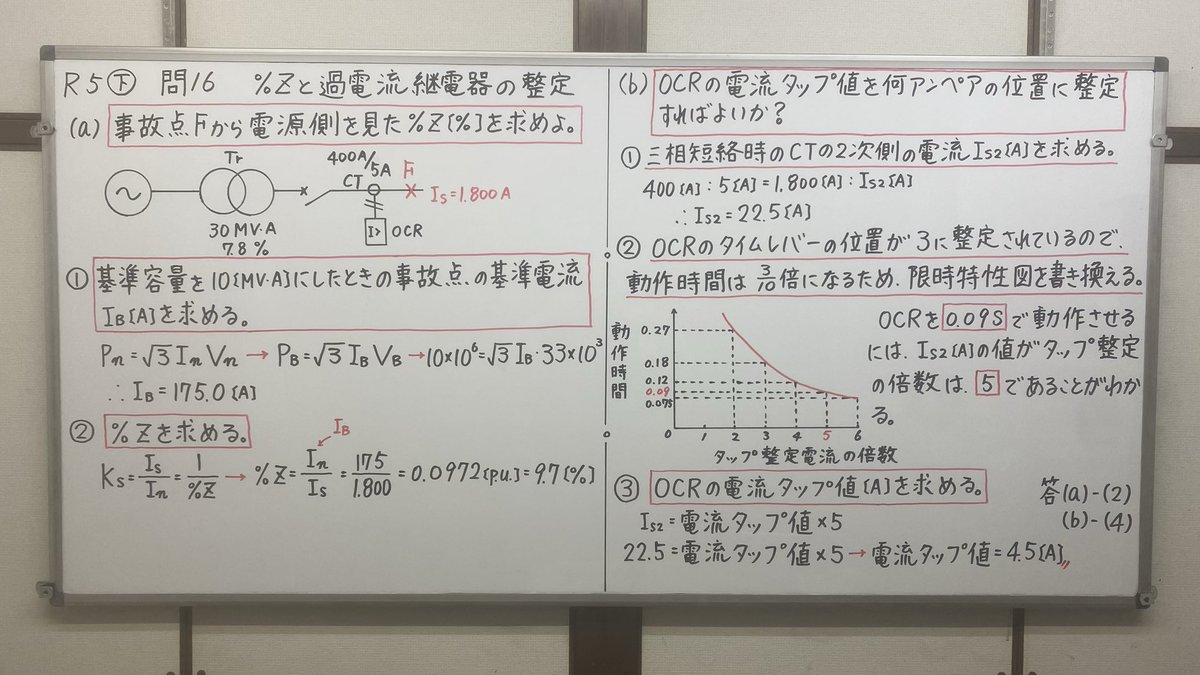 R5下 問16 %Zと過電流継電器の整定
(a) 事故点Fから電源側を見た%Z[%]を求めよ。
Tr
400A/5A
F
CT
Is=1.800A
I>
OCR
30MV·A
7.8%
① 基準容量を10[MV·A]にしたときの事故点の基準電流
IB[A]を求める。
Pn=√3InVn→PB=√3IBVB→10×10⁶=√3IB·33×10³
∴IB=175.0[A]
② %Zを求める。
IB
Ks=Is/In=1/%Z→%Z=In/Is=175/1.800=0.0972[p.u.]=9.7[%]
(b) OCRの電流タップ値を何アンペアの位置に整定
すればよいか?
① 三相短絡時のCTの2次側の電流Is2[A]を求める。
400[A]:5[A]=1.800[A]:Is2[A]
∴Is2=22.5[A]
② OCRのタイムレバーの位置が3に整定されているので、
動作時間は3/10倍になるため、限時特性図を書き換える。
動作時間
0.27
0.18
0.12
0.09
0.075
0 1 2 3 4 5 6
タップ整定電流の倍数
OCRを0.09Sで動作させる
には、Is2[A]の値がタップ整定
の倍数は、5であることがわか
る。
③ OCRの電流タップ値[A]を求める。
Is2=電流タップ値×5
22.5=電流タップ値×5→電流タップ値=4.5[A]〃
答(a)-(2)
(b)-(4)